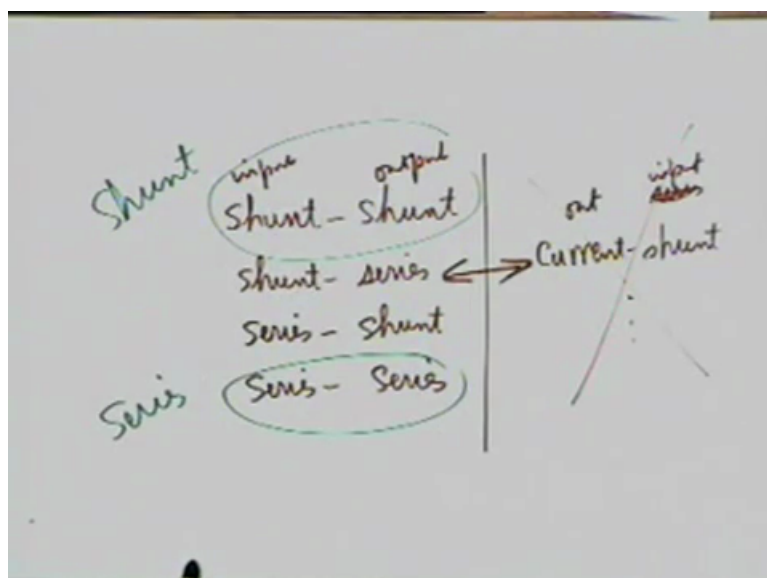 Shunt
input output
Shunt - Shunt
shunt - series
series - Shunt
Seris - Series
Seris
out input
Current - shunt